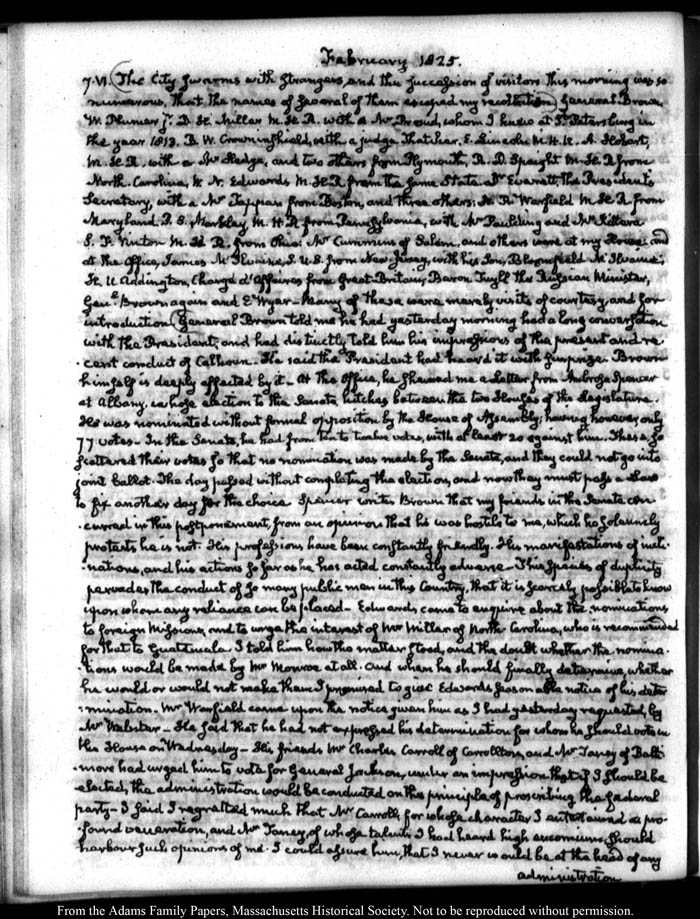 February 1825.
7. VI. The City swarms with Strangers, and the succession of visitors this morning was so
numerous, that the names of several of them escaped my recollection General Brown,
W. Plumer Jr. D. H. Miller M. H. R. with a Mr Proud, whom I knew at St Petersburg in
the year 1813. B. W. Crowninshield, with a judge Thatcher, E. Lincoln M. H. R. A. Hobart,
M. H. R. with a Mr Sledge, and two others from Plymouth, R. D. Speight M. H. R from
North Carolina, W. N. Edwards M. H. R from the same State Dr Everett, the President's
Secretary, with a Mr Tappan from Boston, and three others; H. R. Warfield M. H. R from
Maryland P. S. Markley M. H. R from Pennsylvania, with Mr Paulding and Mr Kittera
S. F. Vinton M. H. R. from Ohio: Mr Cummins of Salem, and others were at my House; and
at the Office, James McIlvaine, S. U. S. from New Jersey, with his Son, Bloomfield McIlvaine;
H. U. Addington, Chargé d'Affaires from Great-Britain; Baron Tuyll the Russian Minister,
Genl. Brown again and E. Wyer— Many of these were merely visits of courtesy, and for
introduction. General Brown told me he had yesterday morning had a long conversation
with the President, and had distinctly told him his impressions of the present and re-
-cent conduct of Calhoun. He said the President had heard it with surprize. Brown
himself is deeply affected by it— At the Office, he shewed me a Letter from Ambrose Spencer
at Albany, whose election to the Senate hitches between the two Houses of the Legislature.
He was nominated without formal opposition by the House of Assembly; having however only
77 votes— In the Senate, he had from ten to twelve votes, with at least 20 against him. These, so
scattered their votes so that no nomination was made by the Senate, and they could not go into
joint ballot. The day passed without completing the election, and now they must pass a Law
to fix another day for the choice Spencer writes Brown that my friends in the Senate con-
-curred in this postponement, from an opinion that he was hostile to me, which he solemnly
protests he is not. His professions have been constantly friendly. His manifestations of incli-
-nations, and his actions so far as he has acted constantly adverse— This species of duplicity
pervades the conduct of so many public men in this Country, that it is scarcely possible to know
upon whom any reliance can be placed— Edwards came to enquire about the nominations
to foreign Missions, and to urge the interest of Mr Miller of North Carolina, who is recommended
for that to Guatemala. I told him how the matter stood, and the doubt whether the nomina-
-tions would be made by Mr Monroe at all. And when he should finally determine, whether
he would or would not make them I promised to give Edwards seasonable notice of his deter-
-mination. Mr Warfield came upon the notice given him as I had yesterday requested, by
Mr Webster— He said that he had not expressed his determination for whom he should vote in
the House on Wednesday— His friends Mr Charles Carroll of Carrollton, and Mr Taney of Balti-
-more had urged him to vote for General Jackson, under an impression that if I should be
elected, the administration would be conducted on the principle of proscribing the federal
party— I said I regretted much that Mr Carroll, for whose character I entertained a pro-
-found veneration, and Mr Taney, of whose talents I had heard high encomiums, should
harbour such opinions of me. I could assure him, that I never would be at the head of any
administration
From the Adams Family Papers, Massachusetts Historical Society. Not to be reproduced without permission.